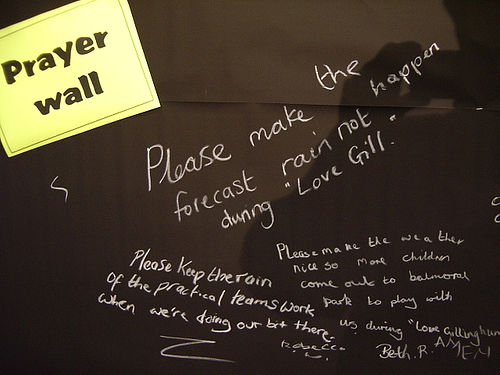 Prayer
wall
Please make the
forecast rain not happen
during "Love Gill."
Please Keep the rain
of the practical teams work
when we're doing our bit there.
Rebecca
W.
Please make the weather
nice so more children
come out to balmoral
park to play with
us during "Love Gillingham
Beth. R. AMEN